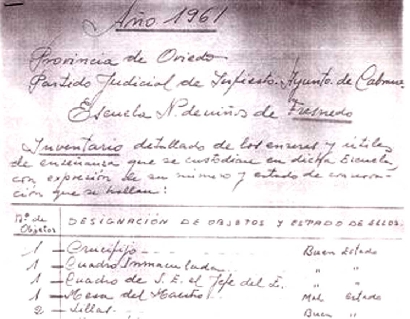 Año 1961
Provincia de Oviedo
Partido Judicial de Infiesto. Ayunto. de Cabranes
Escuela N. de niños de Fresnedo
Inventario detallado de los enseres y útiles
de enseñanza que se custodian en dicha Escuela,
con expresión de su número y estado de conserva-
ción que se hallan:
Nº de Objetos DESIGNACIÓN DE OBJETOS Y ESTADO DE ELLOS.
1 — Crucifijo Buen Estado
1 — Cuadro Inmaculada " "
1 — Cuadro de S. E. el Jefe del E. " "
1 — Mesa del Maestro Mal Estado
2 — Sillas Buen "